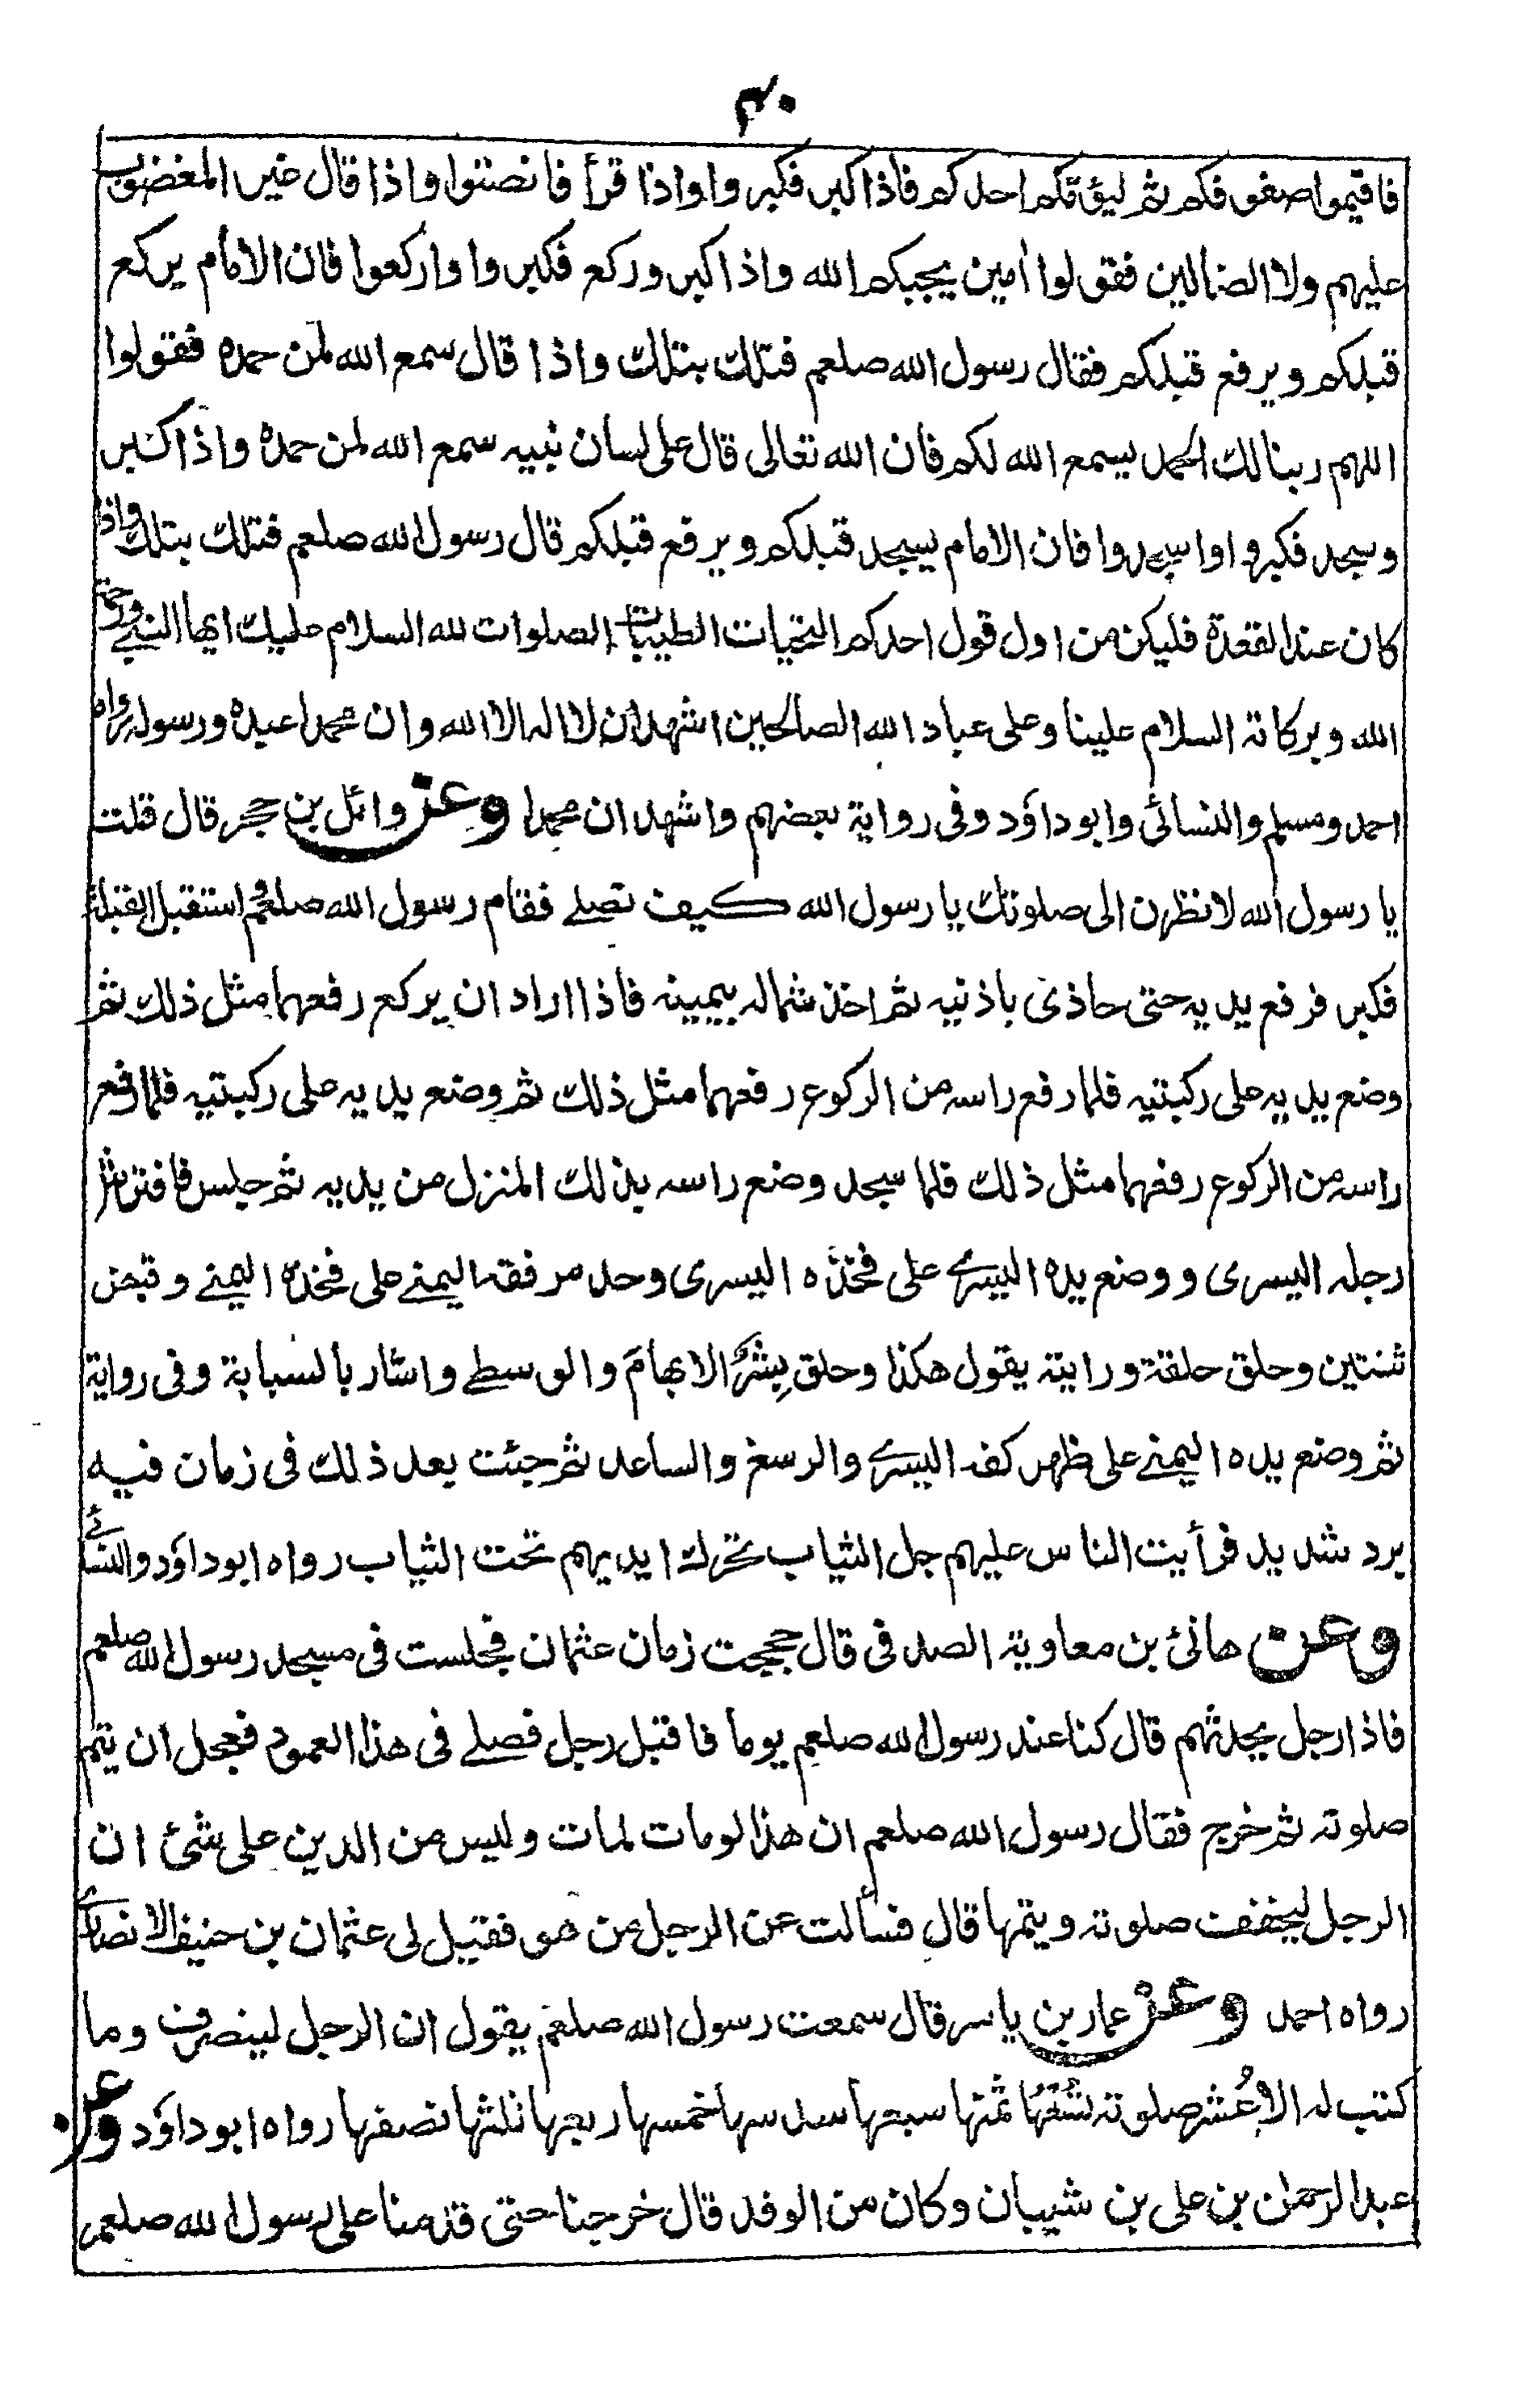 ۴۰
فاقيموا صفوفكم ثم ليؤمكم احدكم فاذا كبر فكبروا واذا قرأ فانصتوا واذا قال غير المغضوب
عليهم ولا الضالين فقولوا امين يجبكم الله واذا كبر وركع فكبروا واركعوا فان الامام يركع
قبلكم ويرفع قبلكم فقال رسول الله صلعم فتلك بتلك واذا قال سمع الله لمن حمده فقولوا
اللهم ربنا لك الحمد يسمع الله لكم فان الله تعالى قال على لسان نبيه سمع الله لمن حمده واذا كبر
وسجد فكبروا واسجدوا فان الامام يسجد قبلكم ويرفع قبلكم قال رسول الله صلعم فتلك بتلك واذا
كان عند القعدة فليكن من اول قول احدكم التحيات الطيبات الصلوات لله السلام عليك ايها النبي ورحمة
الله وبركاته السلام علينا وعلى عباد الله الصالحين اشهد ان لا اله الا الله وان محمدا عبده ورسوله رواه
احمد ومسلم والنسائي وابو داؤد وفى رواية بعضهم واشهد ان محمدا وعن وائل بن حجر قال قلت
يا رسول الله لانظرن الى صلوتك يا رسول الله كيف تصلے فقام رسول الله صلعم واستقبل القبلة
فكبر فرفع يديه حتى حاذى باذنيه ثم اخذ شماله بيمينه فاذا اراد ان يركع رفعهما مثل ذلك ثم
وضع يديه على ركبتيه فلما رفع راسه من الركوع رفعهما مثل ذلك ثم وضع يديه على ركبتيه فلما رفع
راسه من الركوع رفعهما مثل ذلك فلما سجد وضع راسه بذلك المنزل من يديه ثم جلس فافترش
رجله اليسرى و وضع يده اليسرے على فخذه اليسرى وحد مرفقه اليمنے على فخذه اليمنے وقبض
ثنتين وحلق حلقة ورايته يقول هكذا وحلق بشر الابهام والوسطے واشار بالسبابة وفى رواية
ثم وضع يده اليمنے على ظهر كفه اليسرے والرسغ والساعد ثم جئت بعد ذلك فى زمان فيه
برد شديد فرأيت الناس عليهم جل الثياب تحرك ايديهم تحت الثياب رواه ابو داؤد والنسائے
وعن هانئ بن معاوية الصدفى قال حججت زمان عثمان فجلست فى مسجد رسول الله صلعم
فاذا رجل يحدثهم قال كنا عند رسول الله صلعم يوما فاقبل رجل فصلے فى هذا العمود فعجل ان يتم
صلوته ثم خرج فقال رسول الله صلعم ان هذا لو مات لمات وليس من الدين على شئ ان
الرجل ليخفف صلوته ويتمها قال فسألت عن الرجل من هو فقيل لى عثمان بن حنيف الانصارے
رواه احمد وعن عمار بن ياسر قال سمعت رسول الله صلعم يقول ان الرجل لينصرف وما
كتب له الا عُشر صلوته تُسُعُها ثمنها سبعها سدسها خمسها ربعها ثلثها نصفها رواه ابو داؤد وعن
عبد الرحمن بن على بن شيبان وكان من الوفد قال خرجنا حتى قدمنا على رسول الله صلعم